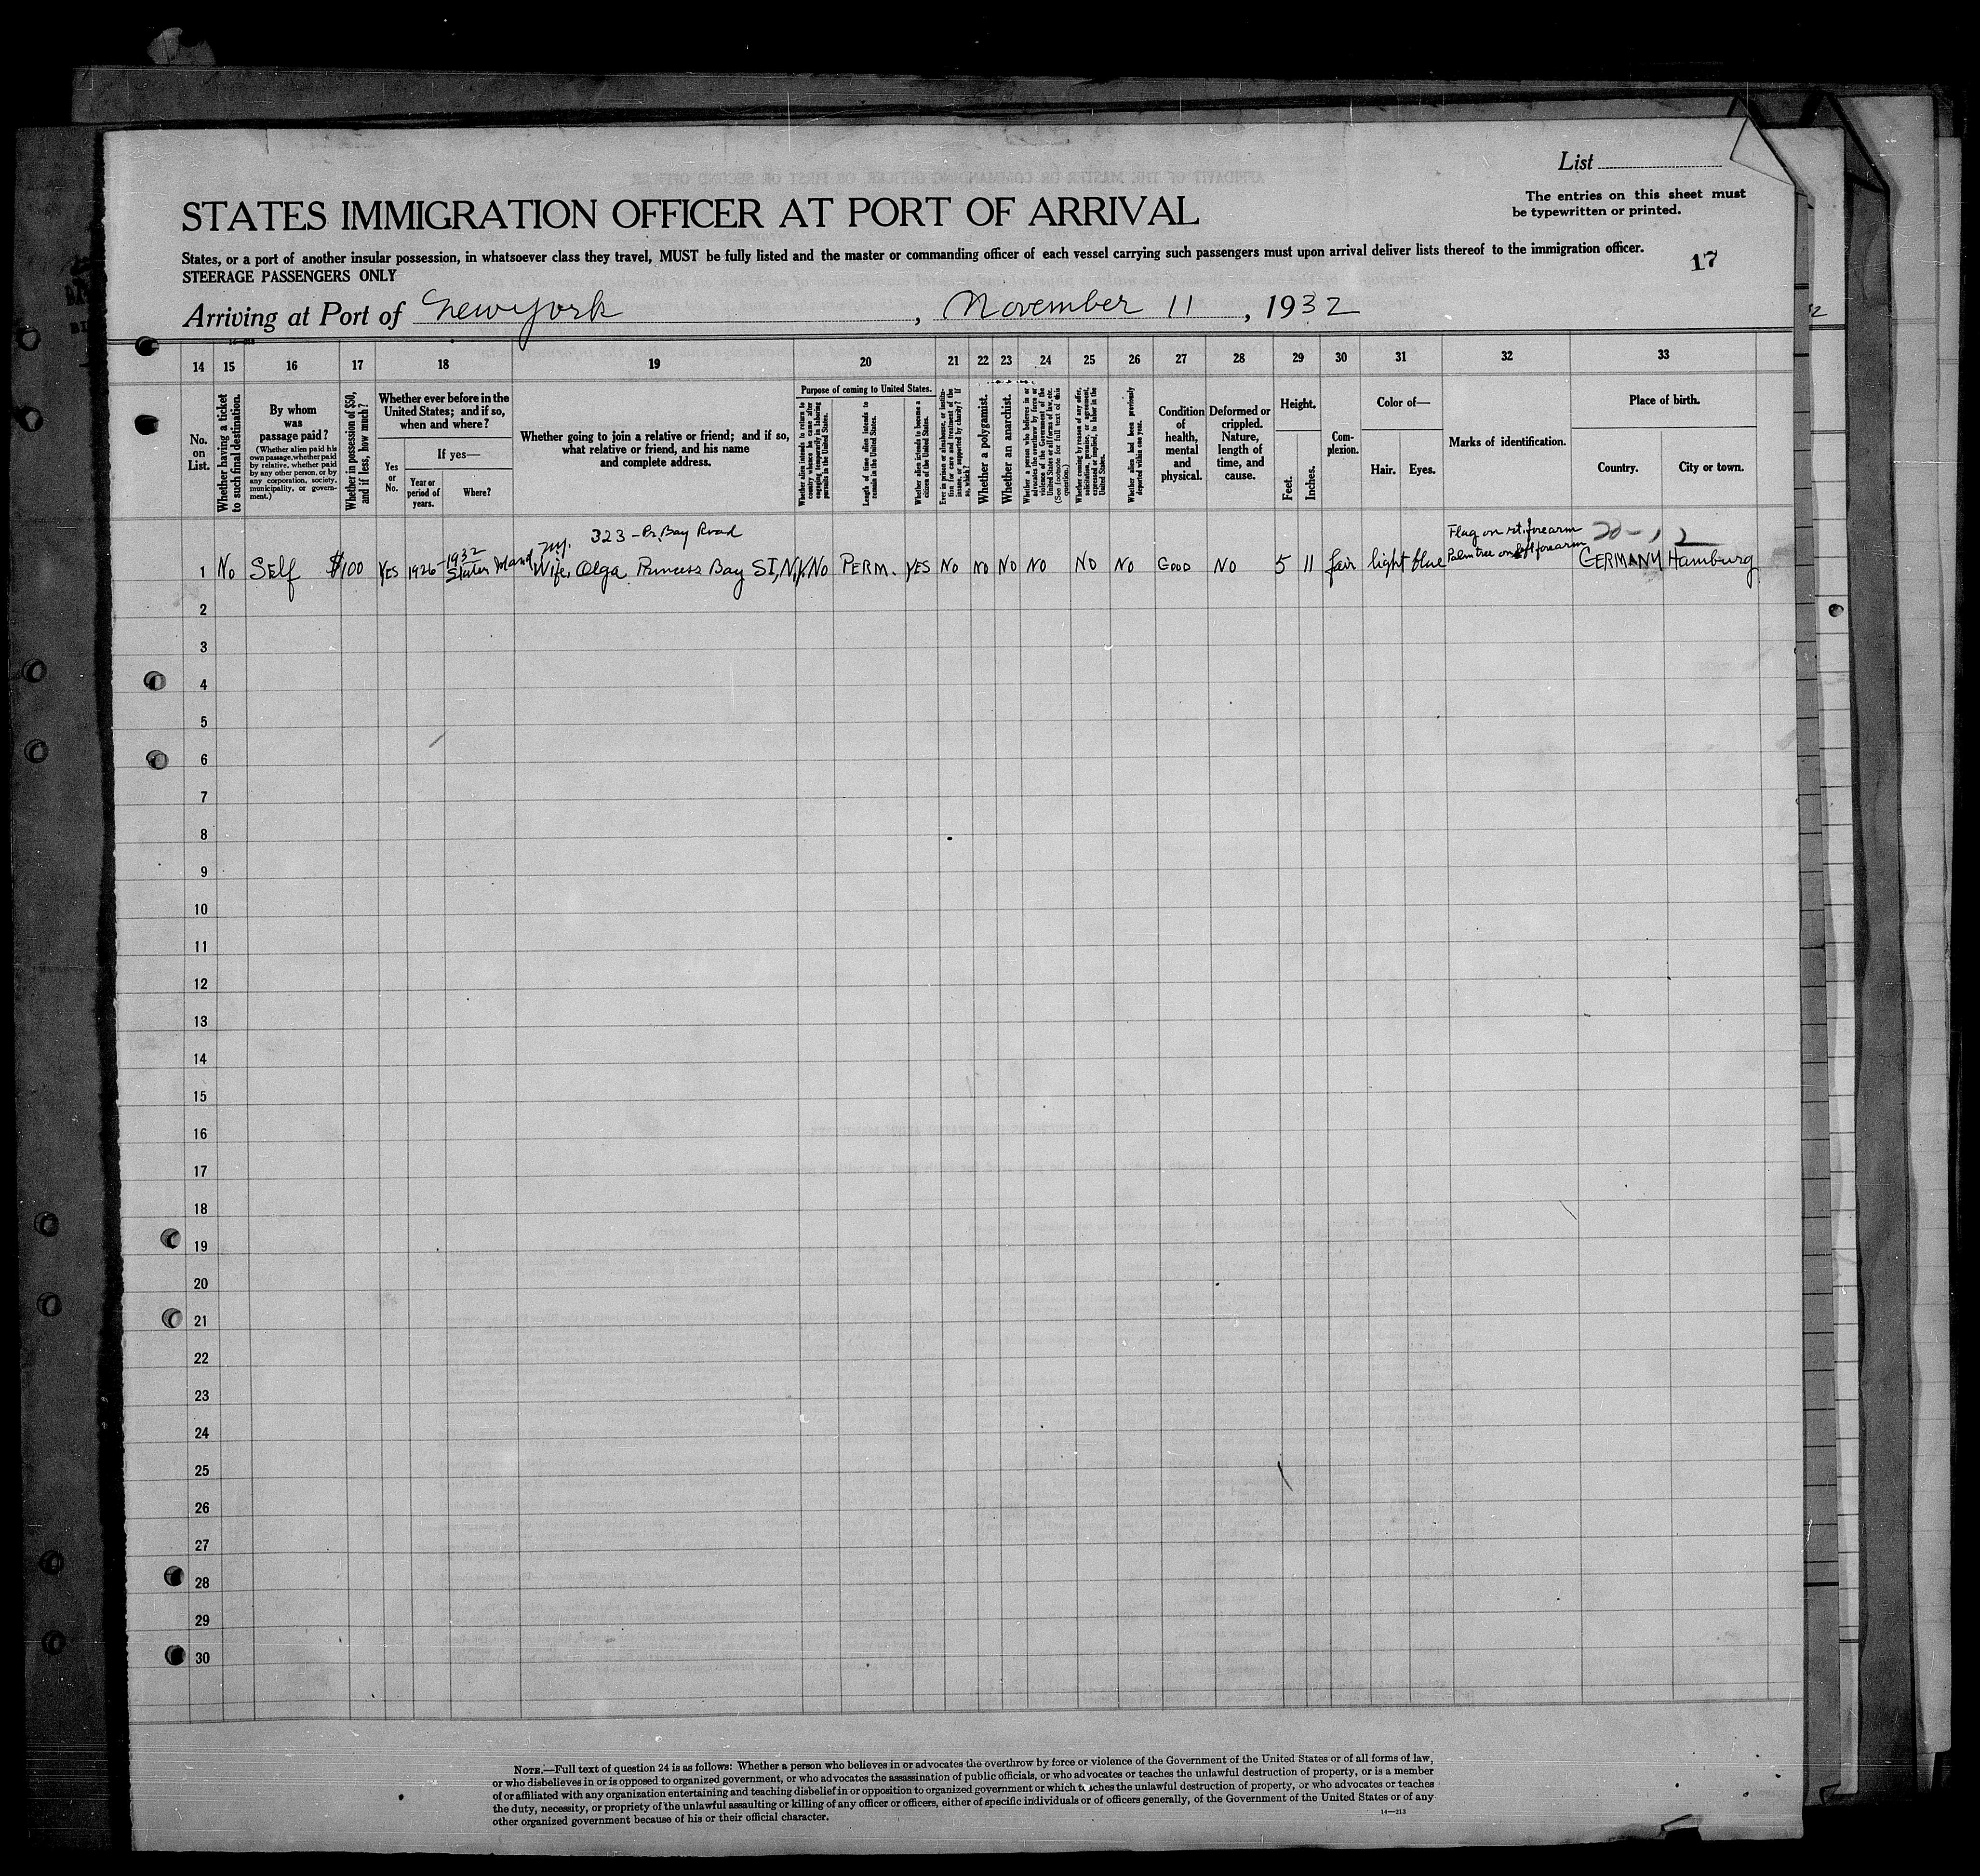 List
The entries on this sheet must
be typewritten or printed.
STATES IMMIGRATION OFFICER AT PORT OF ARRIVAL
States, or a port of another insular possession, in whatsoever class they travel, MUST be fully listed and the master or commanding officer of each vessel carrying such passengers must upon arrival deliver lists thereof to the immigration officer.
STEERAGE PASSENGERS ONLY
17
Arriving at Port of New York, November 11, 1932
14 15 16 17 18 19 20 21 22 23 24 25 26 27 28 29 30 31 32 33
No.
on
List.
Whether having a ticket
to such final destination.
By whom
was
passage paid?
(Whether alien paid his
own passage, whether paid
by relative, whether paid
by any other person, or by
any corporation, society,
municipality, or govern-
ment.)
Whether in possession of $50,
and if less, how much?
Whether ever before in the
United States; and if so,
when and where?
Yes
or
No.
If yes—
Year or
period of
years.
Where?
Whether going to join a relative or friend; and if so,
what relative or friend, and his name
and complete address.
Purpose of coming to United States.
Whether alien intends to return to
country whence he came after
engaging temporarily in laboring
pursuits in the United States.
Length of time alien intends to
remain in the United States.
Whether alien intends to become a
citizen of the United States.
Ever in prison or almshouse, or institu-
tion for care and treatment of the
insane, or supported by charity? If
so, which?
Whether a polygamist.
Whether an anarchist.
Whether a person who believes in or
advocates the overthrow by force or
violence of the Government of the
United States or all forms of law, etc.
(See footnote for full text of this
question.)
Whether coming by reason of any offer,
solicitation, promise, or agreement,
expressed or implied, to labor in the
United States.
Whether alien had been previously
deported within one year.
Condition
of
health,
mental
and
physical.
Deformed or
crippled.
Nature,
length of
time, and
cause.
Height.
Feet.
Inches.
Com-
plexion.
Color of—
Hair. Eyes.
Marks of identification.
Place of birth.
Country. City or town.
323 - Pr. Bay Road
Flag on rt. forearm
1932 Palm tree on left forearm
1 No Self $100 YES 1926- Staten Island, NY. Wife, Olga, Princess Bay SI, N.Y. No PERM. YES No No No No No No Good No 5 11 fair light blue GERMANY Hamburg
2
3
4
5
6
7
8
9
10
11
12
13
14
15
16
17
18
19
20
21
22
23
24
25
26
27
28
29
30
NOTE.—Full text of question 24 is as follows: Whether a person who believes in or advocates the overthrow by force or violence of the Government of the United States or of all forms of law,
or who disbelieves in or is opposed to organized government, or who advocates the assassination of public officials, or who advocates or teaches the unlawful destruction of property, or is a member
of or affiliated with any organization entertaining and teaching disbelief in or opposition to organized government or which teaches the unlawful destruction of property, or who advocates or teaches
the duty, necessity, or propriety of the unlawful assaulting or killing of any officer or officers, either of specific individuals or of officers generally, of the Government of the United States or of any
other organized government because of his or their official character.
14—213